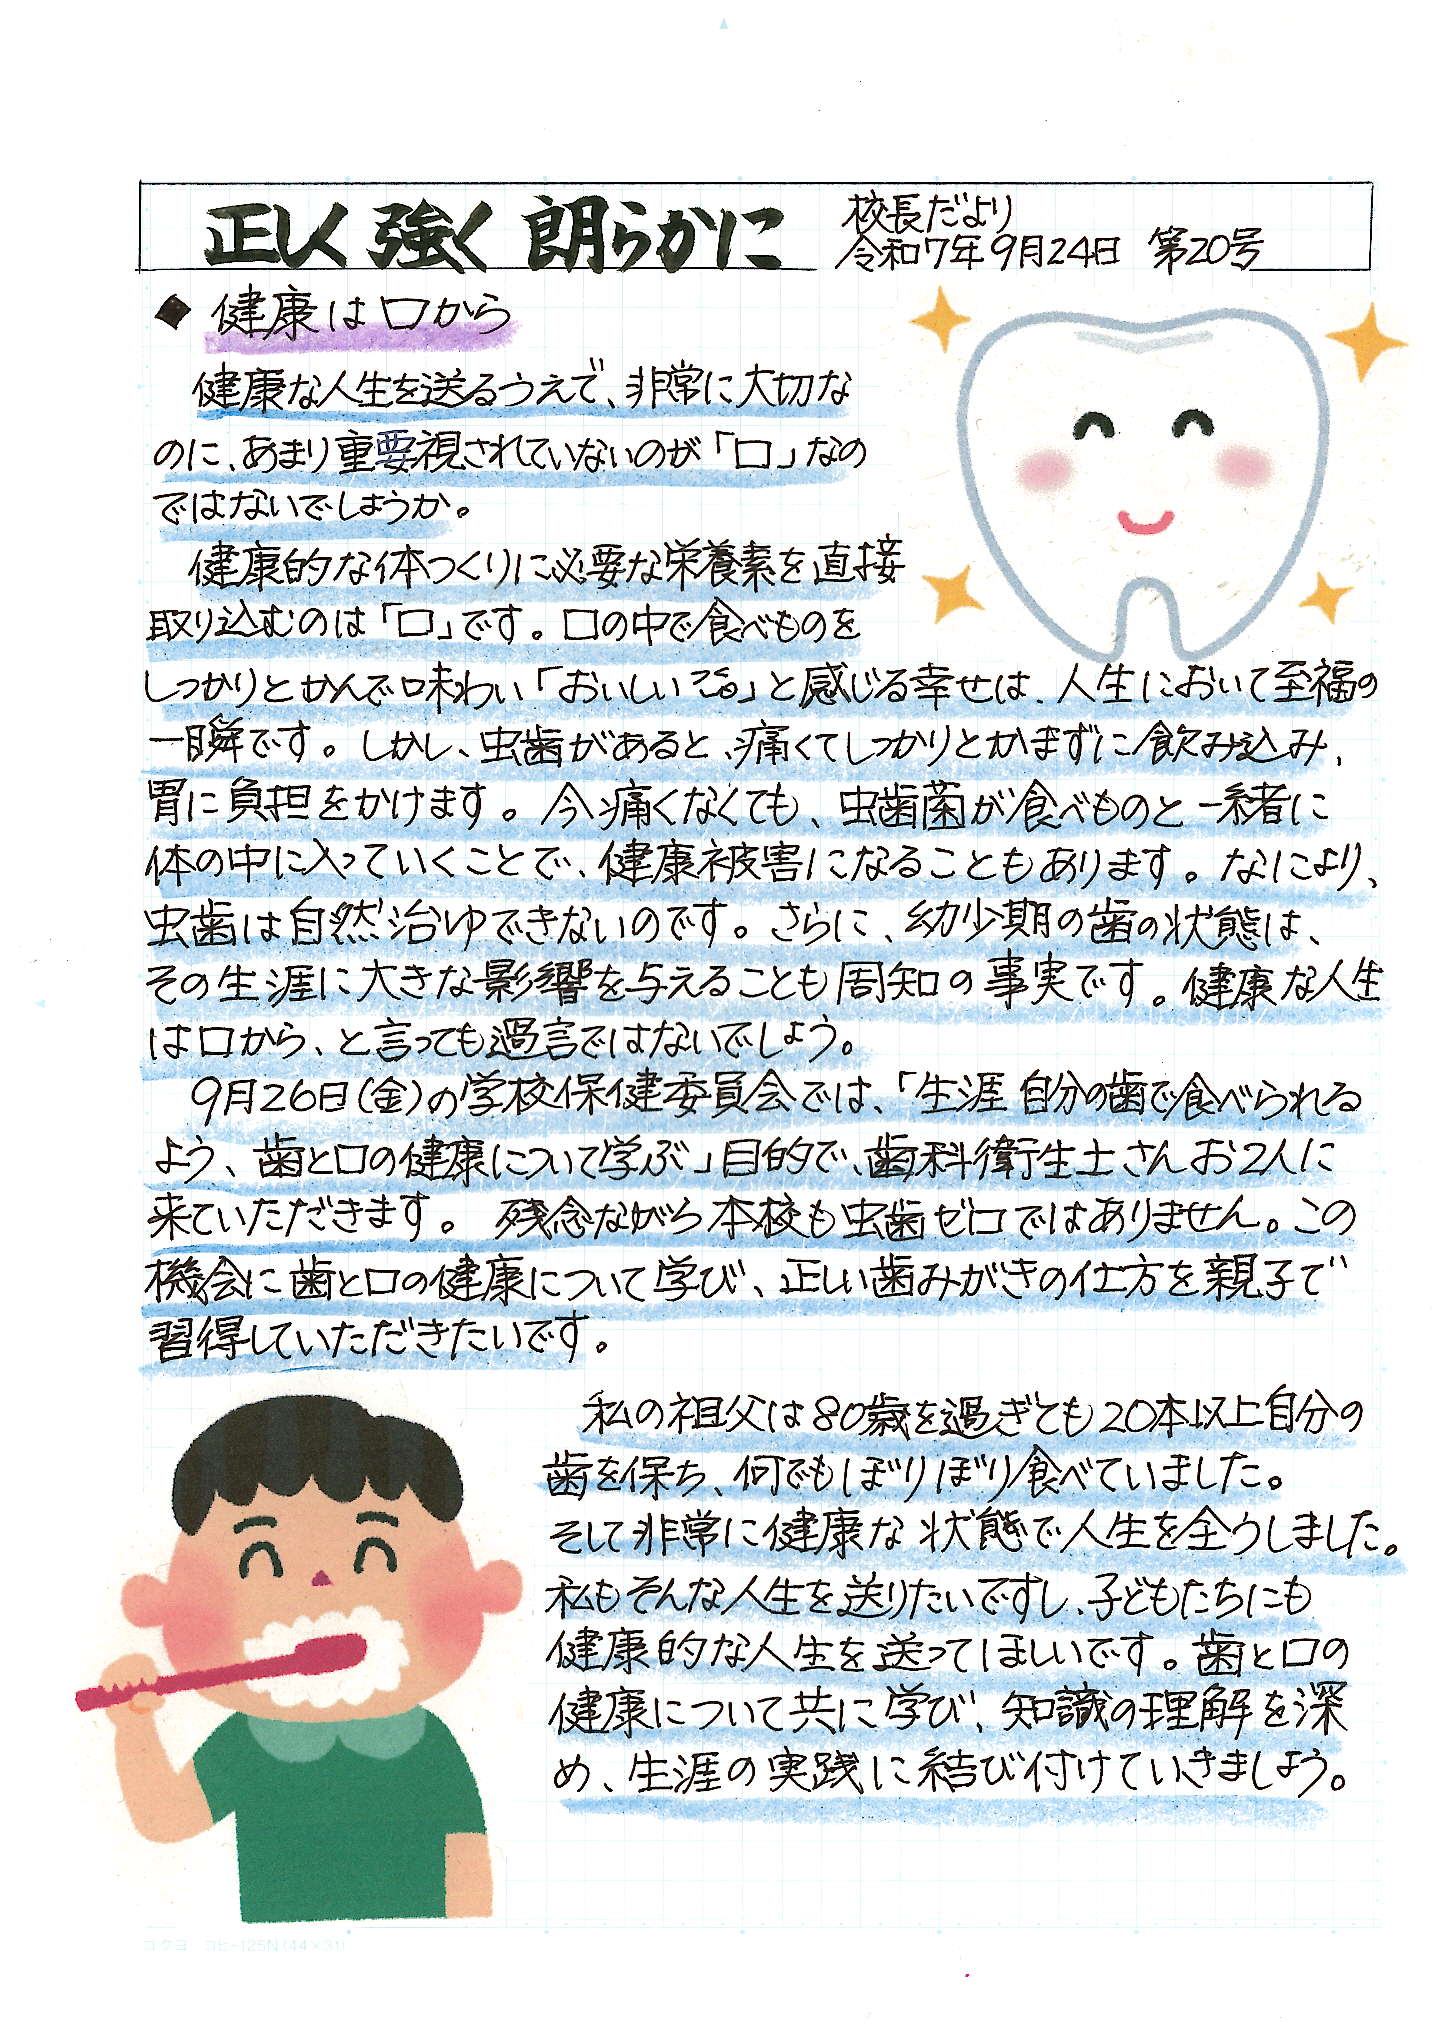 正しく 強く 朗らかに
校長だより
令和7年9月24日 第20号
◆ 健康は口から
健康な人生を送るうえで、非常に大切な
のに、あまり重要視されていないのが「口」なの
ではないでしょうか。
健康的な体つくりに必要な栄養素を直接
取り込むのは「口」です。口の中で食べものを
しっかりとかんで味わい「おいしいなぁ」と感じる幸せは、人生において至福の
一瞬です。しかし、虫歯があると、痛くてしっかりとかまずに飲み込み、
胃に負担をかけます。今痛くなくても、虫歯菌が食べものと一緒に
体の中に入っていくことで、健康被害になることもあります。なにより、
虫歯は自然治ゆできないのです。さらに、幼少期の歯の状態は、
その生涯に大きな影響を与えることも周知の事実です。健康な人生
は口から、と言っても過言ではないでしょう。
9月26日(金)の学校保健委員会では、「生涯 自分の歯で食べられる
よう、歯と口の健康について学ぶ」目的で、歯科衛生士さんお2人に
来ていただきます。残念ながら本校も虫歯ゼロではありません。この
機会に歯と口の健康について学び、正しい歯みがきの仕方を親子で
習得していただきたいです。
私の祖父は80歳を過ぎても20本以上自分の
歯を保ち、何でもぼりぼり食べていました。
そして非常に健康な状態で人生を全うしました。
私もそんな人生を送りたいですし、子どもたちにも
健康的な人生を送ってほしいです。歯と口の
健康について共に学び、知識の理解を深
め、生涯の実践に結び付けていきましょう。
コクヨ コヒ-125N(44×31)